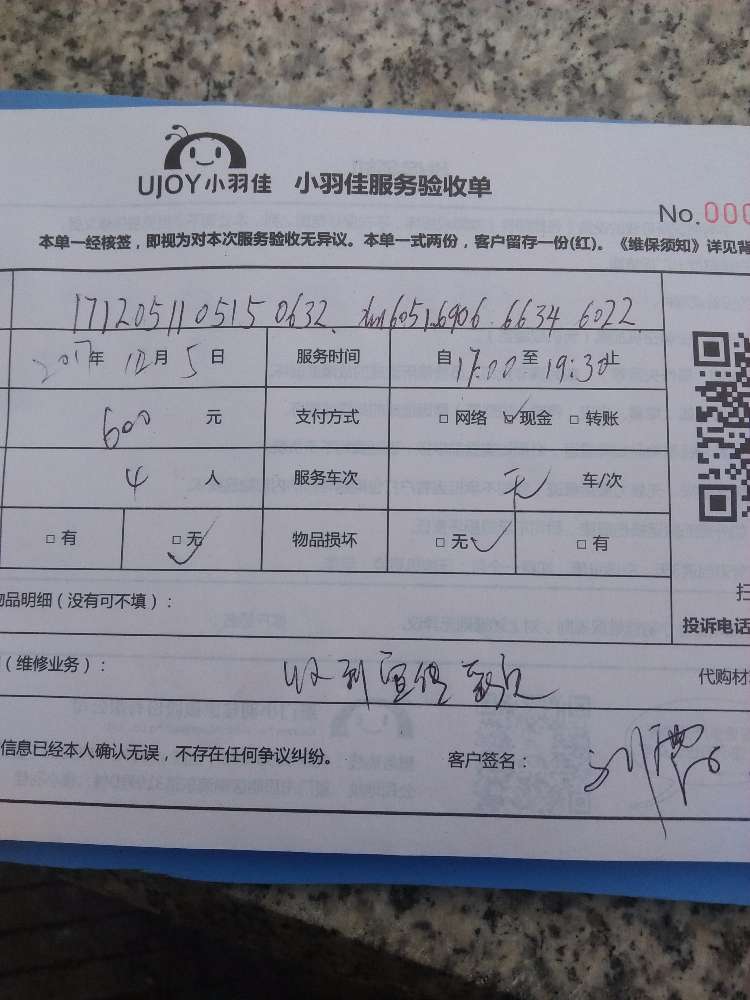 UJOY小羽佳 小羽佳服务验收单
No.000
本单一经核签，即视为对本次服务验收无异议。本单一式两份，客户留存一份(红)。《维保须知》详见背
1712051105150632 6051 6906 6634 6022
2017年 12月 5日 服务时间 自17:00至19:30止
600 元 支付方式 □ 网络 □ 现金 □ 转账
4 人 服务车次 无 车/次
□ 有 □ 无 物品损坏 □ 无 □ 有
扫
品明细（没有可不填）：
投诉电话
（维修业务）： 收到宣传
代购材
信息已经本人确认无误，不存在任何争议纠纷。 客户签名： 刘